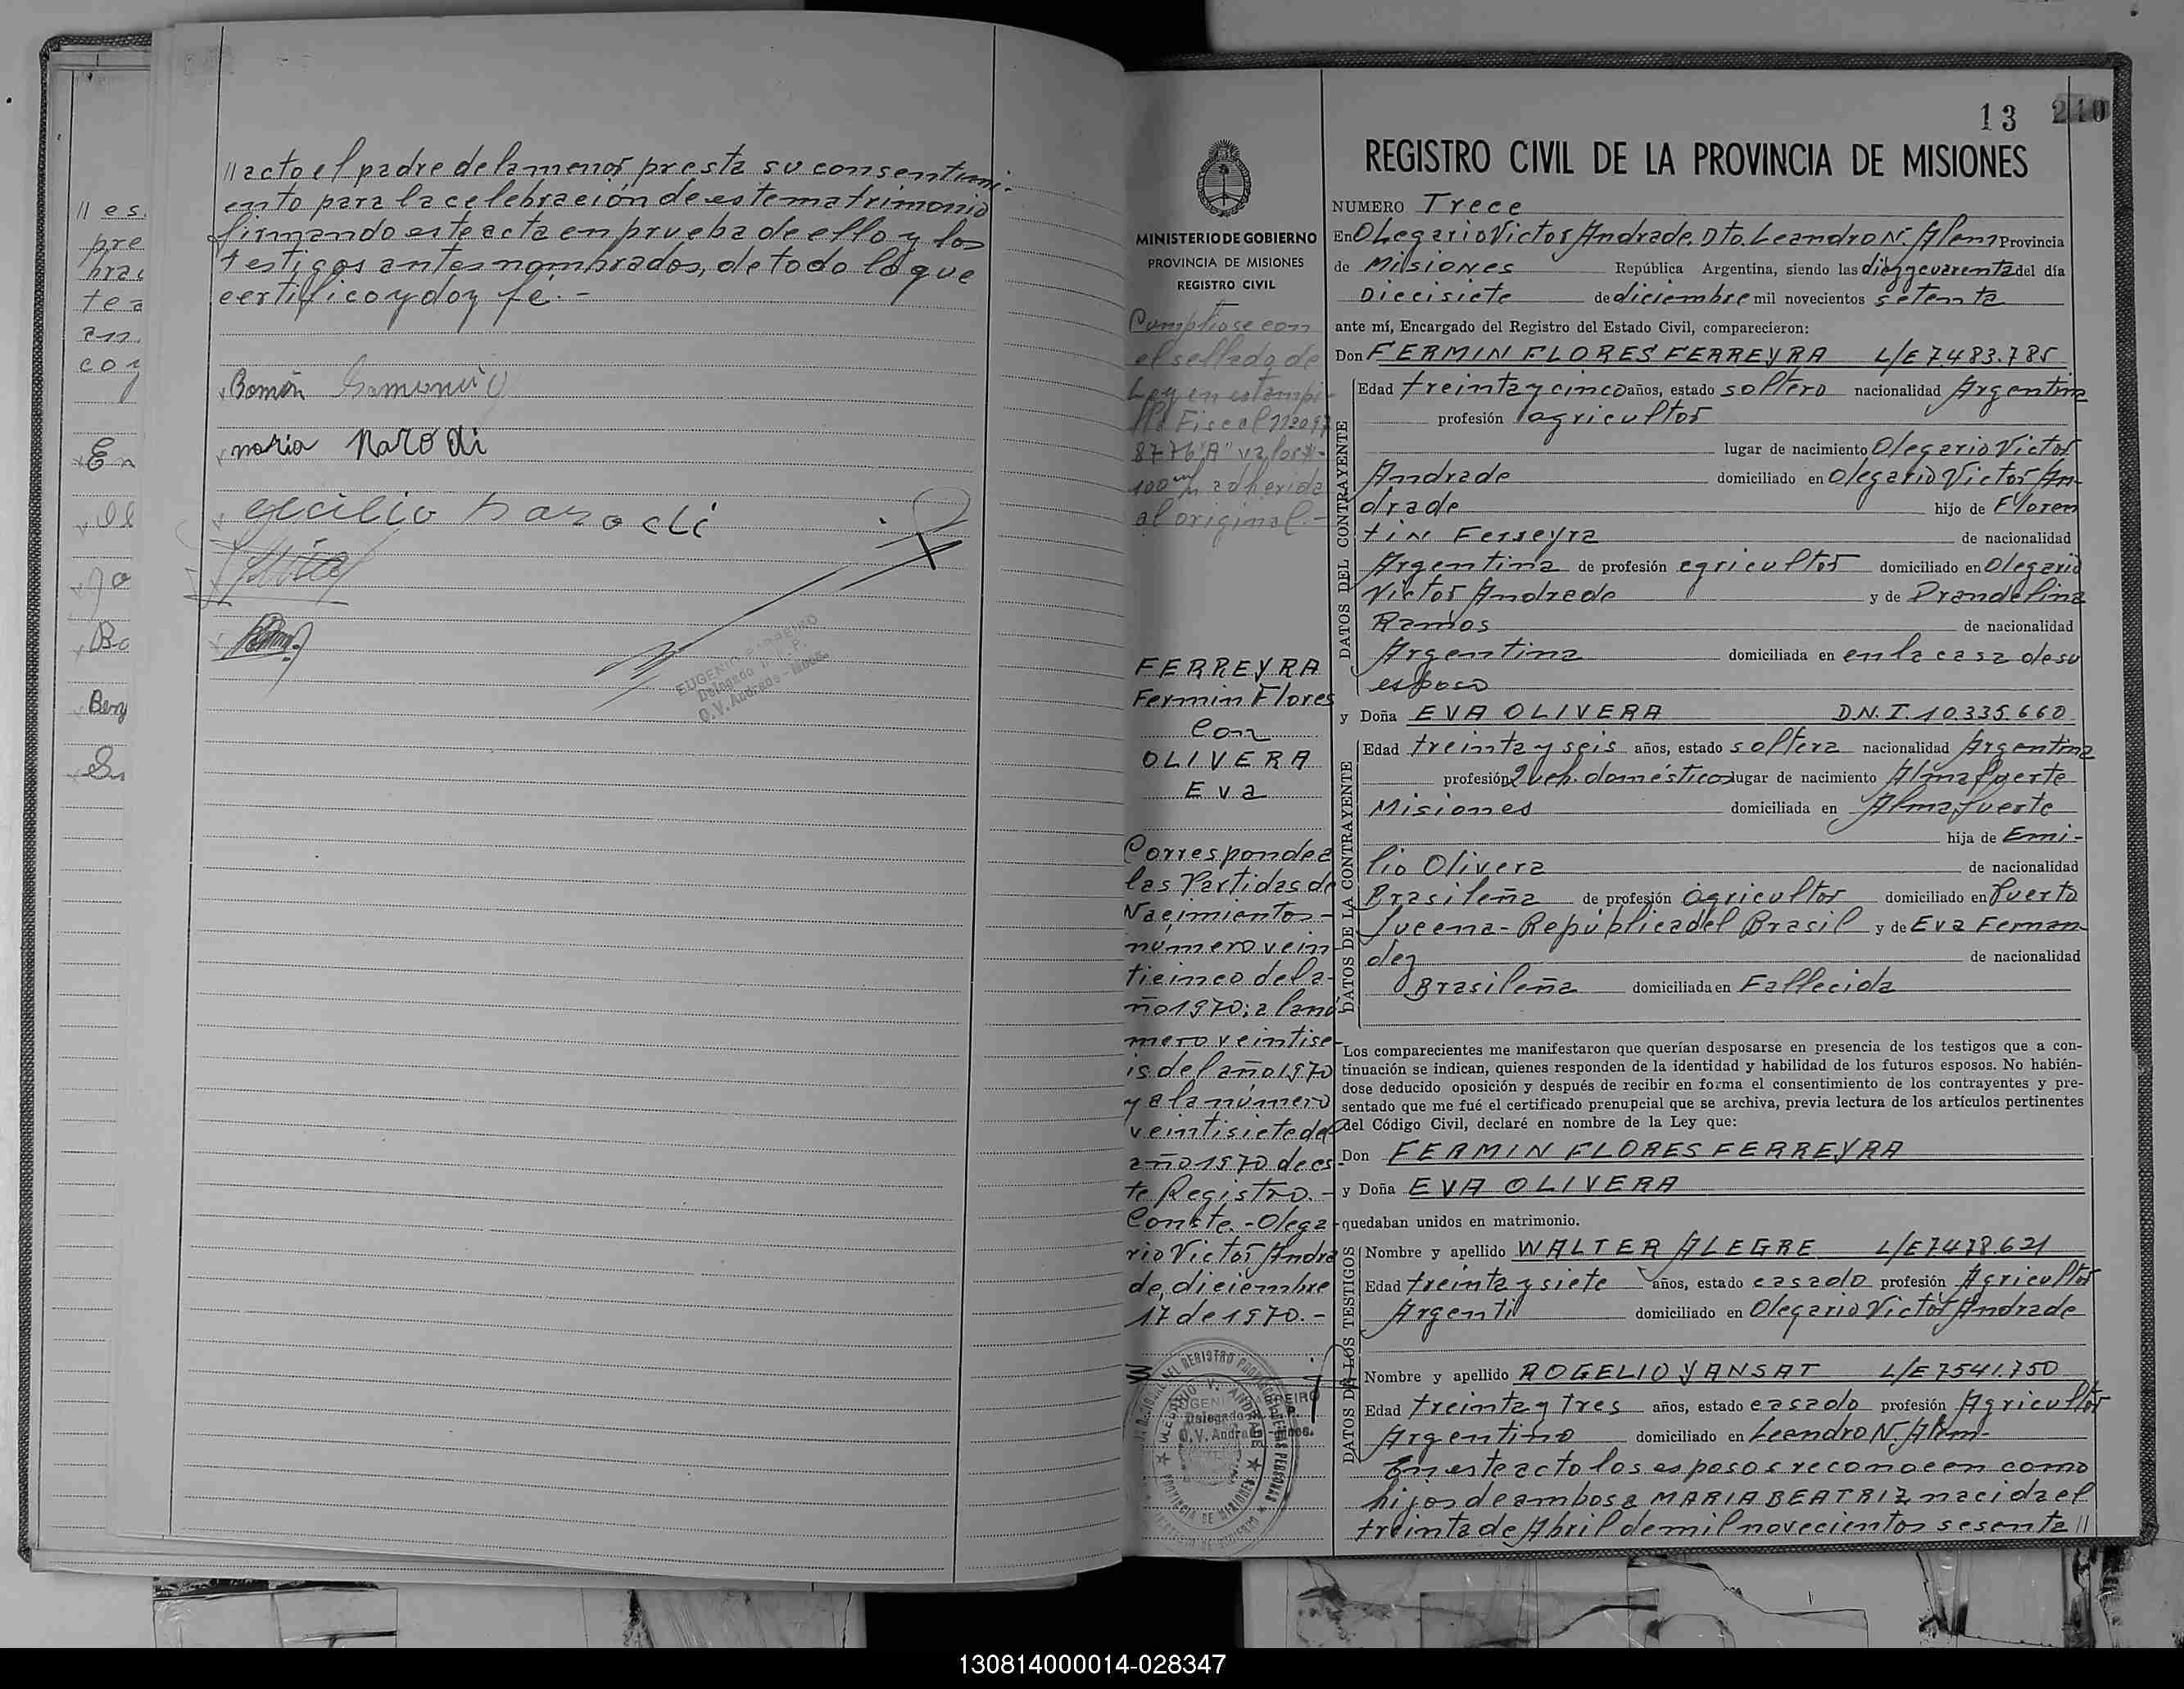 // es
pre
brac
tea
an
coy
// acto el padre de la menor presta su consentimi-
ento para la celebración de este matrimonio
firmando este acta en prueba de ello y los
testigos antes nombrados, de todo lo que
certifico y doy fé.-
Román
maria Narodi
EUGENIO PARREIRO
Delegado
O.V. Andrade - Mnes.
13 210
REGISTRO CIVIL DE LA PROVINCIA DE MISIONES
MINISTERIO DE GOBIERNO
PROVINCIA DE MISIONES
REGISTRO CIVIL
Cumpliose con
el sellado de
Ley en estampi-
lla Fiscal
8776 "A" valor $-
100 m/n adherida
al original.-
FERREYRA
Fermin Flores
Con
OLIVERA
Eva
Corresponde a
las Partidas de
Nacimientos-
número vein
ticinco del a-
ño 1970; a la nú
mero veintise-
is del año 1970
y a la número
veintisiete del
año 1970 de es-
te Registro.-
Conste.-Olega-
rio Victor Andra
de, diciembre
17 de 1970.-
NUMERO Trece
En OLegario Victor Andrade. Dto. Leandro N. Alem Provincia
de Misiones República Argentina, siendo las diez y cuarenta del día
Diecisiete de diciembre mil novecientos setenta
ante mí, Encargado del Registro del Estado Civil, comparecieron:
Don FERMIN FLORES FERREYRA L/E 7.483.785
DATOS DEL CONTRAYENTE
Edad treinta y cinco años, estado soltero nacionalidad Argentina
profesión agricultor
lugar de nacimiento Olegario Victor
Andrade domiciliado en Olegario Victor An-
drade hijo de Floren
tin Ferreyra de nacionalidad
Argentina de profesión agricultor domiciliado en Olegario
Victor Andrade y de Drandelina
Ramos de nacionalidad
Argentina domiciliada en en la casa de su
esposo
y Doña EVA OLIVERA D.N.I. 10.335.660
DATOS DE LA CONTRAYENTE
Edad treinta y seis años, estado soltera nacionalidad Argentina
profesión Queh. domésticos lugar de nacimiento Almafuerte
Misiones domiciliada en Almafuerte
hija de Emi-
lio Olivera de nacionalidad
Brasileña de profesión agricultor domiciliado en Puerto
Lucena - República del Brasil y de Eva Fernan-
dez de nacionalidad
Brasileña domiciliada en Fallecida
Los comparecientes me manifestaron que querían desposarse en presencia de los testigos que a con-
tinuación se indican, quienes responden de la identidad y habilidad de los futuros esposos. No habién-
dose deducido oposición y después de recibir en forma el consentimiento de los contrayentes y pre-
sentado que me fué el certificado prenupcial que se archiva, previa lectura de los artículos pertinentes
del Código Civil, declaré en nombre de la Ley que:
Don FERMIN FLORES FERREYRA
y Doña EVA OLIVERA
quedaban unidos en matrimonio.
DATOS DE LOS TESTIGOS
Nombre y apellido WALTER ALEGRE L/E 7.478.621
Edad treinta y siete años, estado casado profesión Agricultor
Argenti domiciliado en Olegario Victor Andrade
Nombre y apellido ROGELIO YANSAT L/E 7541.750
Edad treinta y tres años, estado casado profesión Agricultor
Argentino domiciliado en Leandro N. Alem-
En este acto los esposos reconocen como
hijos de ambos a MARIA BEATRIZ nacida el
treinta de Abril de mil novecientos sesenta //
130814000014-028347